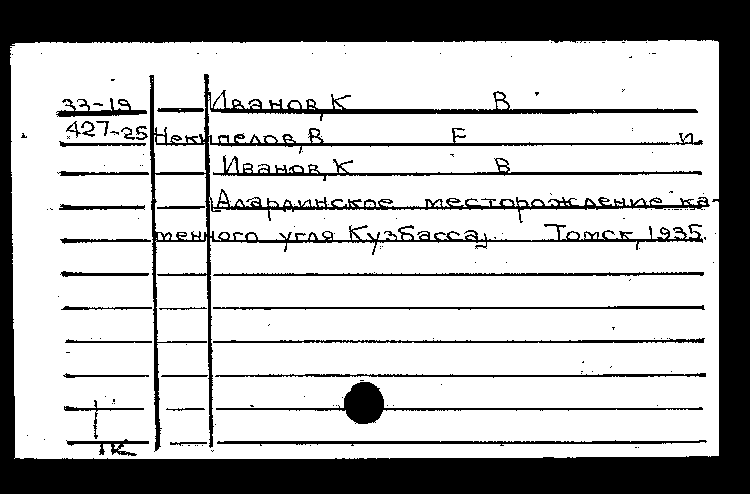 33-19 Иванов, К В
427-25 Некипелов, В Е и
Иванов, К В
Алардинское месторождение ка-
менного угля Кузбасса, Томск, 1935.
1К